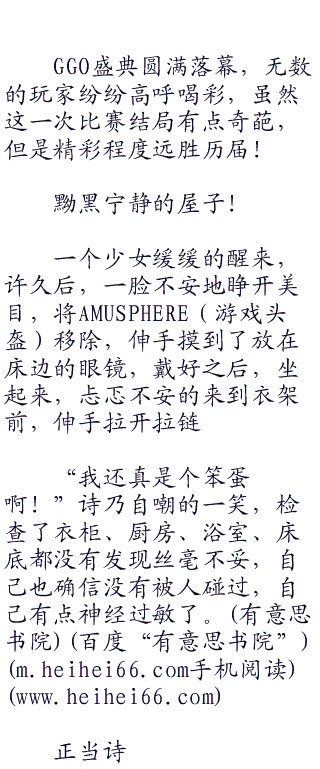 GGO盛典圆满落幕，无数
的玩家纷纷高呼喝彩，虽然
这一次比赛结局有点奇葩，
但是精彩程度远胜历届！
黝黑宁静的屋子！
一个少女缓缓的醒来，
许久后，一脸不安地睁开美
目，将AMUSPHERE（游戏头
盔）移除，伸手摸到了放在
床边的眼镜，戴好之后，坐
起来，忐忑不安的来到衣架
前，伸手拉开拉链
“我还真是个笨蛋
啊！”诗乃自嘲的一笑，检
查了衣柜、厨房、浴室、床
底都没有发现丝毫不妥，自
己也确信没有被人碰过，自
己有点神经过敏了。(有意思
书院)(百度“有意思书院”)
(m.heihei66.com手机阅读)
(www.heihei66.com)
正当诗